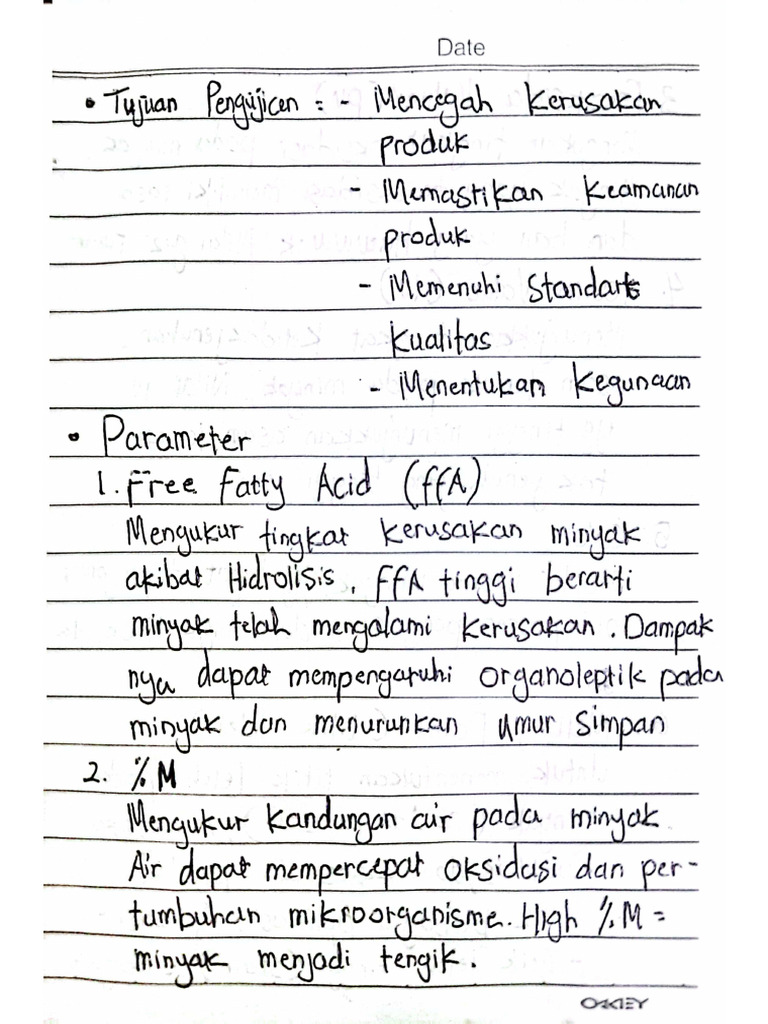 Date
• Tujuan Pengujian = - Mencegah Kerusakan
produk
- Memastikan Keamanan
produk
- Memenuhi Standart
Kualitas
- Menentukan Kegunaan
• Parameter
1. Free Fatty Acid (FFA)
Mengukur tingkat kerusakan minyak
akibat Hidrolisis. FFA tinggi berarti
minyak telah mengalami kerusakan. Dampak
nya dapat mempengaruhi organoleptik pada
minyak dan menurunkan umur simpan
2. %M
Mengukur Kandungan air pada minyak
Air dapat mempercepat oksidasi dan per-
tumbuhan mikroorganisme. High %M =
minyak menjadi tengik.
OAKLEY